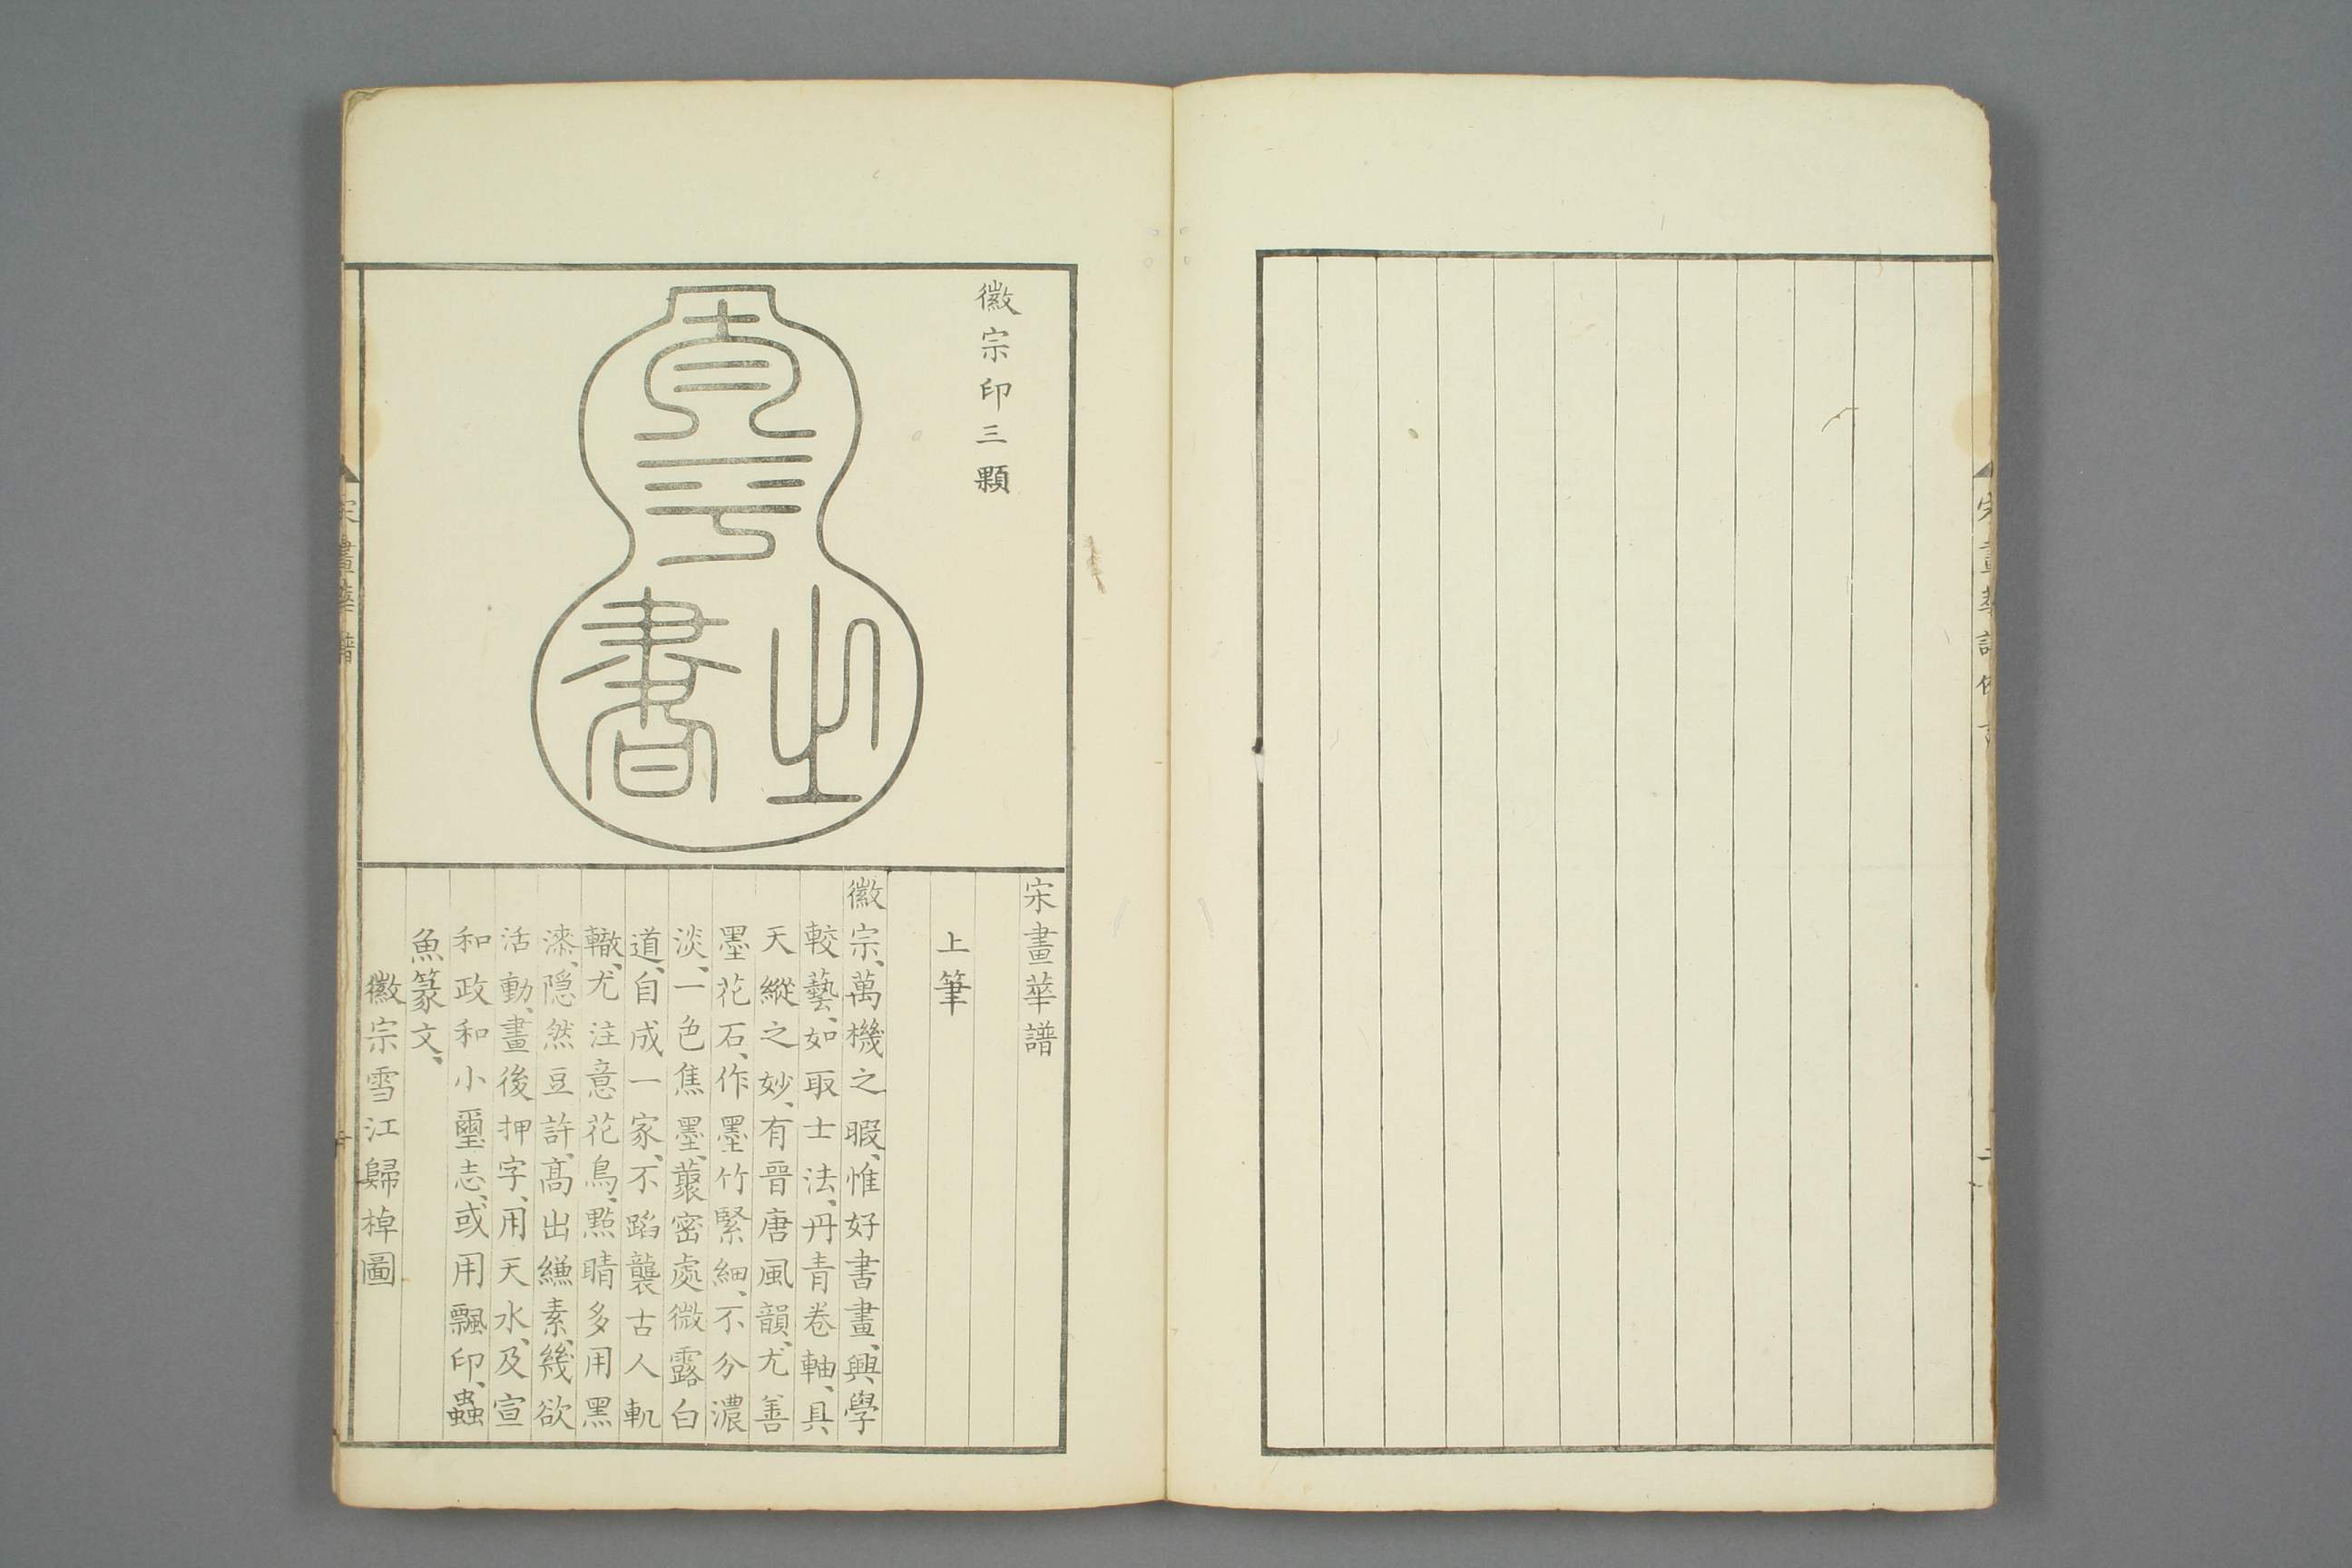 徽宗印三顆
宋畫華譜
上筆
徽宗、萬機之暇、惟好書畫、興學
較藝、如取士法、丹青卷軸、具
天縱之妙、有晉唐風韻、尤善
墨花石、作墨竹緊細、不分濃
淡、一色焦墨、叢密處微露白
道、自成一家、不蹈襲古人軌
轍、尤注意花鳥、點睛多用黑
漆、隠然豆許、髙出縑素、幾欲
活動、畫後押字、用天水、及宣
和政和小璽志、或用飄印、蟲
魚篆文、
徽宗雪江歸棹圖
宋畫華譜